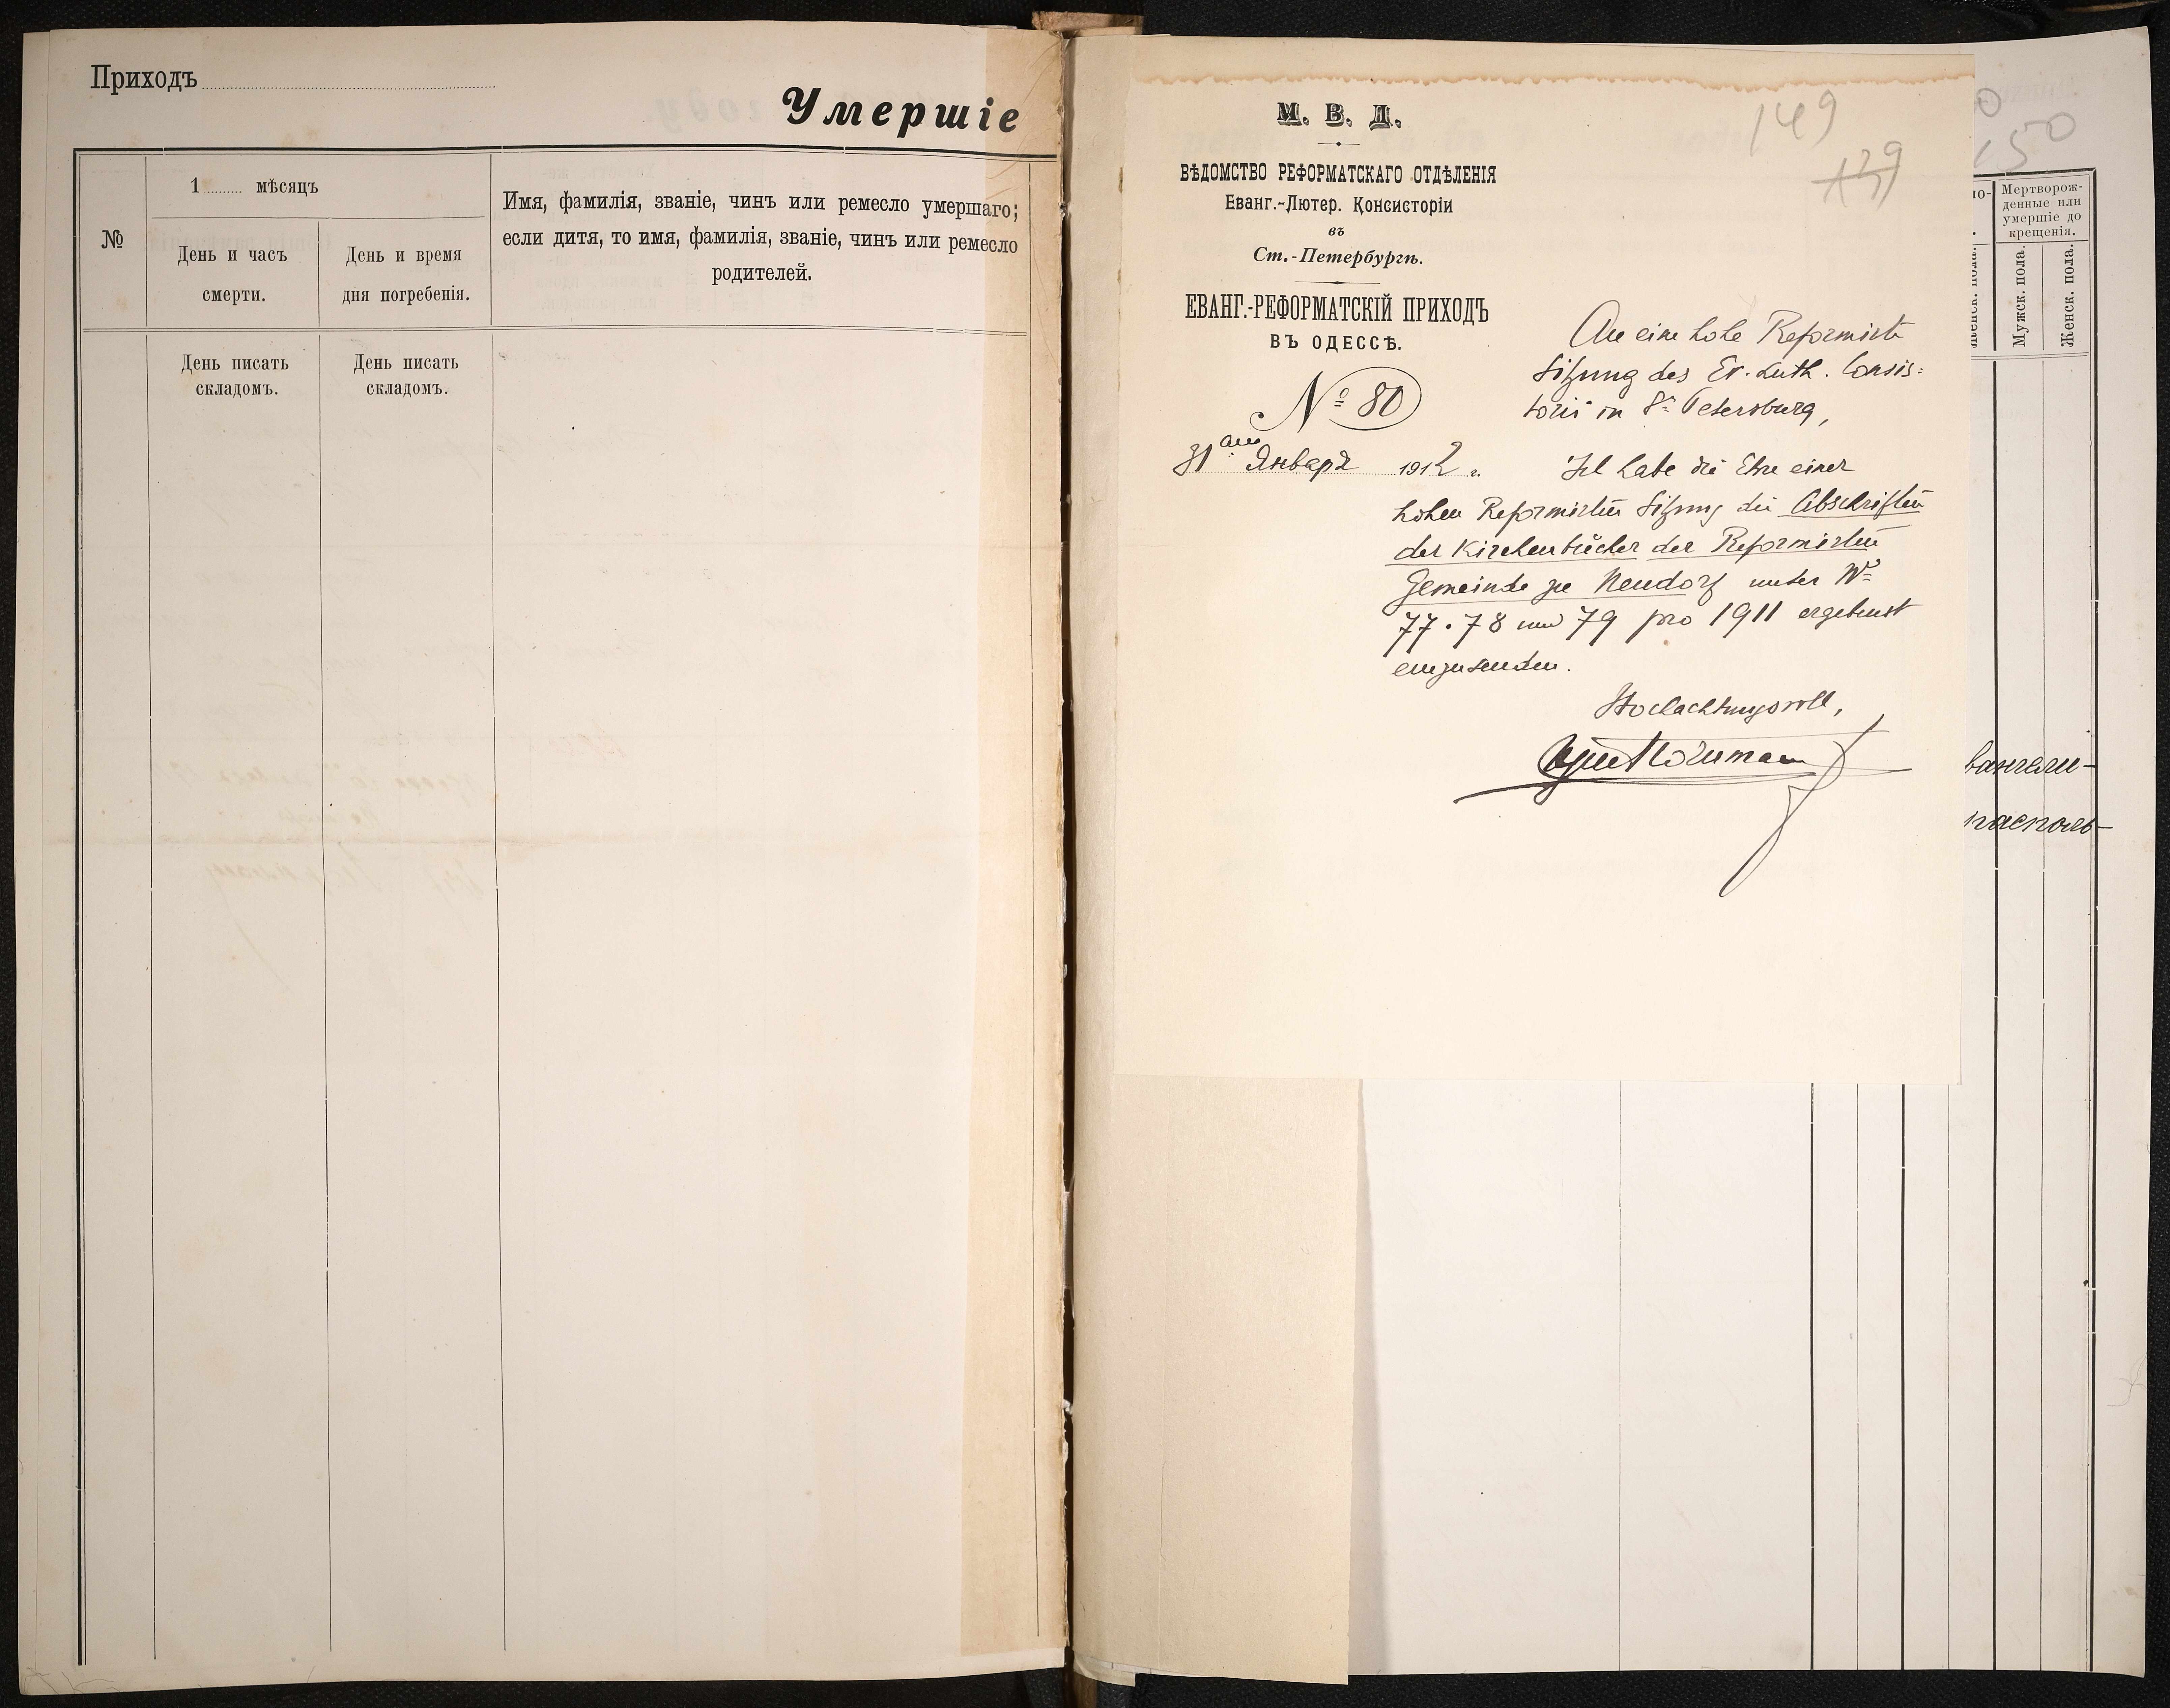 Приходъ
Умершіе
№
1 мѣсяцъ
День и часъ
смерти.
День и время
дня погребенія.
Имя, фамилія, званіе, чинъ или ремесло умершаго;
если дитя, то имя, фамилія, званіе, чинъ или ремесло
родителей.
День писать
складомъ.
День писать
складомъ.
М. В. Д.
ВѢДОМСТВО РЕФОРМАТСКАГО ОТДѢЛЕНІЯ
Еванг.-Лютер. Консисторіи
въ
Ст.-Петербургѣ.
ЕВАНГ.-РЕФОРМАТСКІЙ ПРИХОДЪ
ВЪ ОДЕССѢ.
№ 80
31 Января 1912 г.
149
139
An eine hohe Reformirte
Sitzung des Ev. Luth. Consis=
torii in St. Petersburg,
Ich habe die Ehre einer
hohen Reformirten Sitzung die Abschriften
der Kirchenbücher der Reformirten
Gemeinde zu Neudorf unter No
77. 78 und 79 pro 1911 ergebenst
einzusenden.
Hochachtungsvoll,
150
Мертворож-
денные или
умершіе до
крещенія.
Мужск. пола.
Женск. пола.